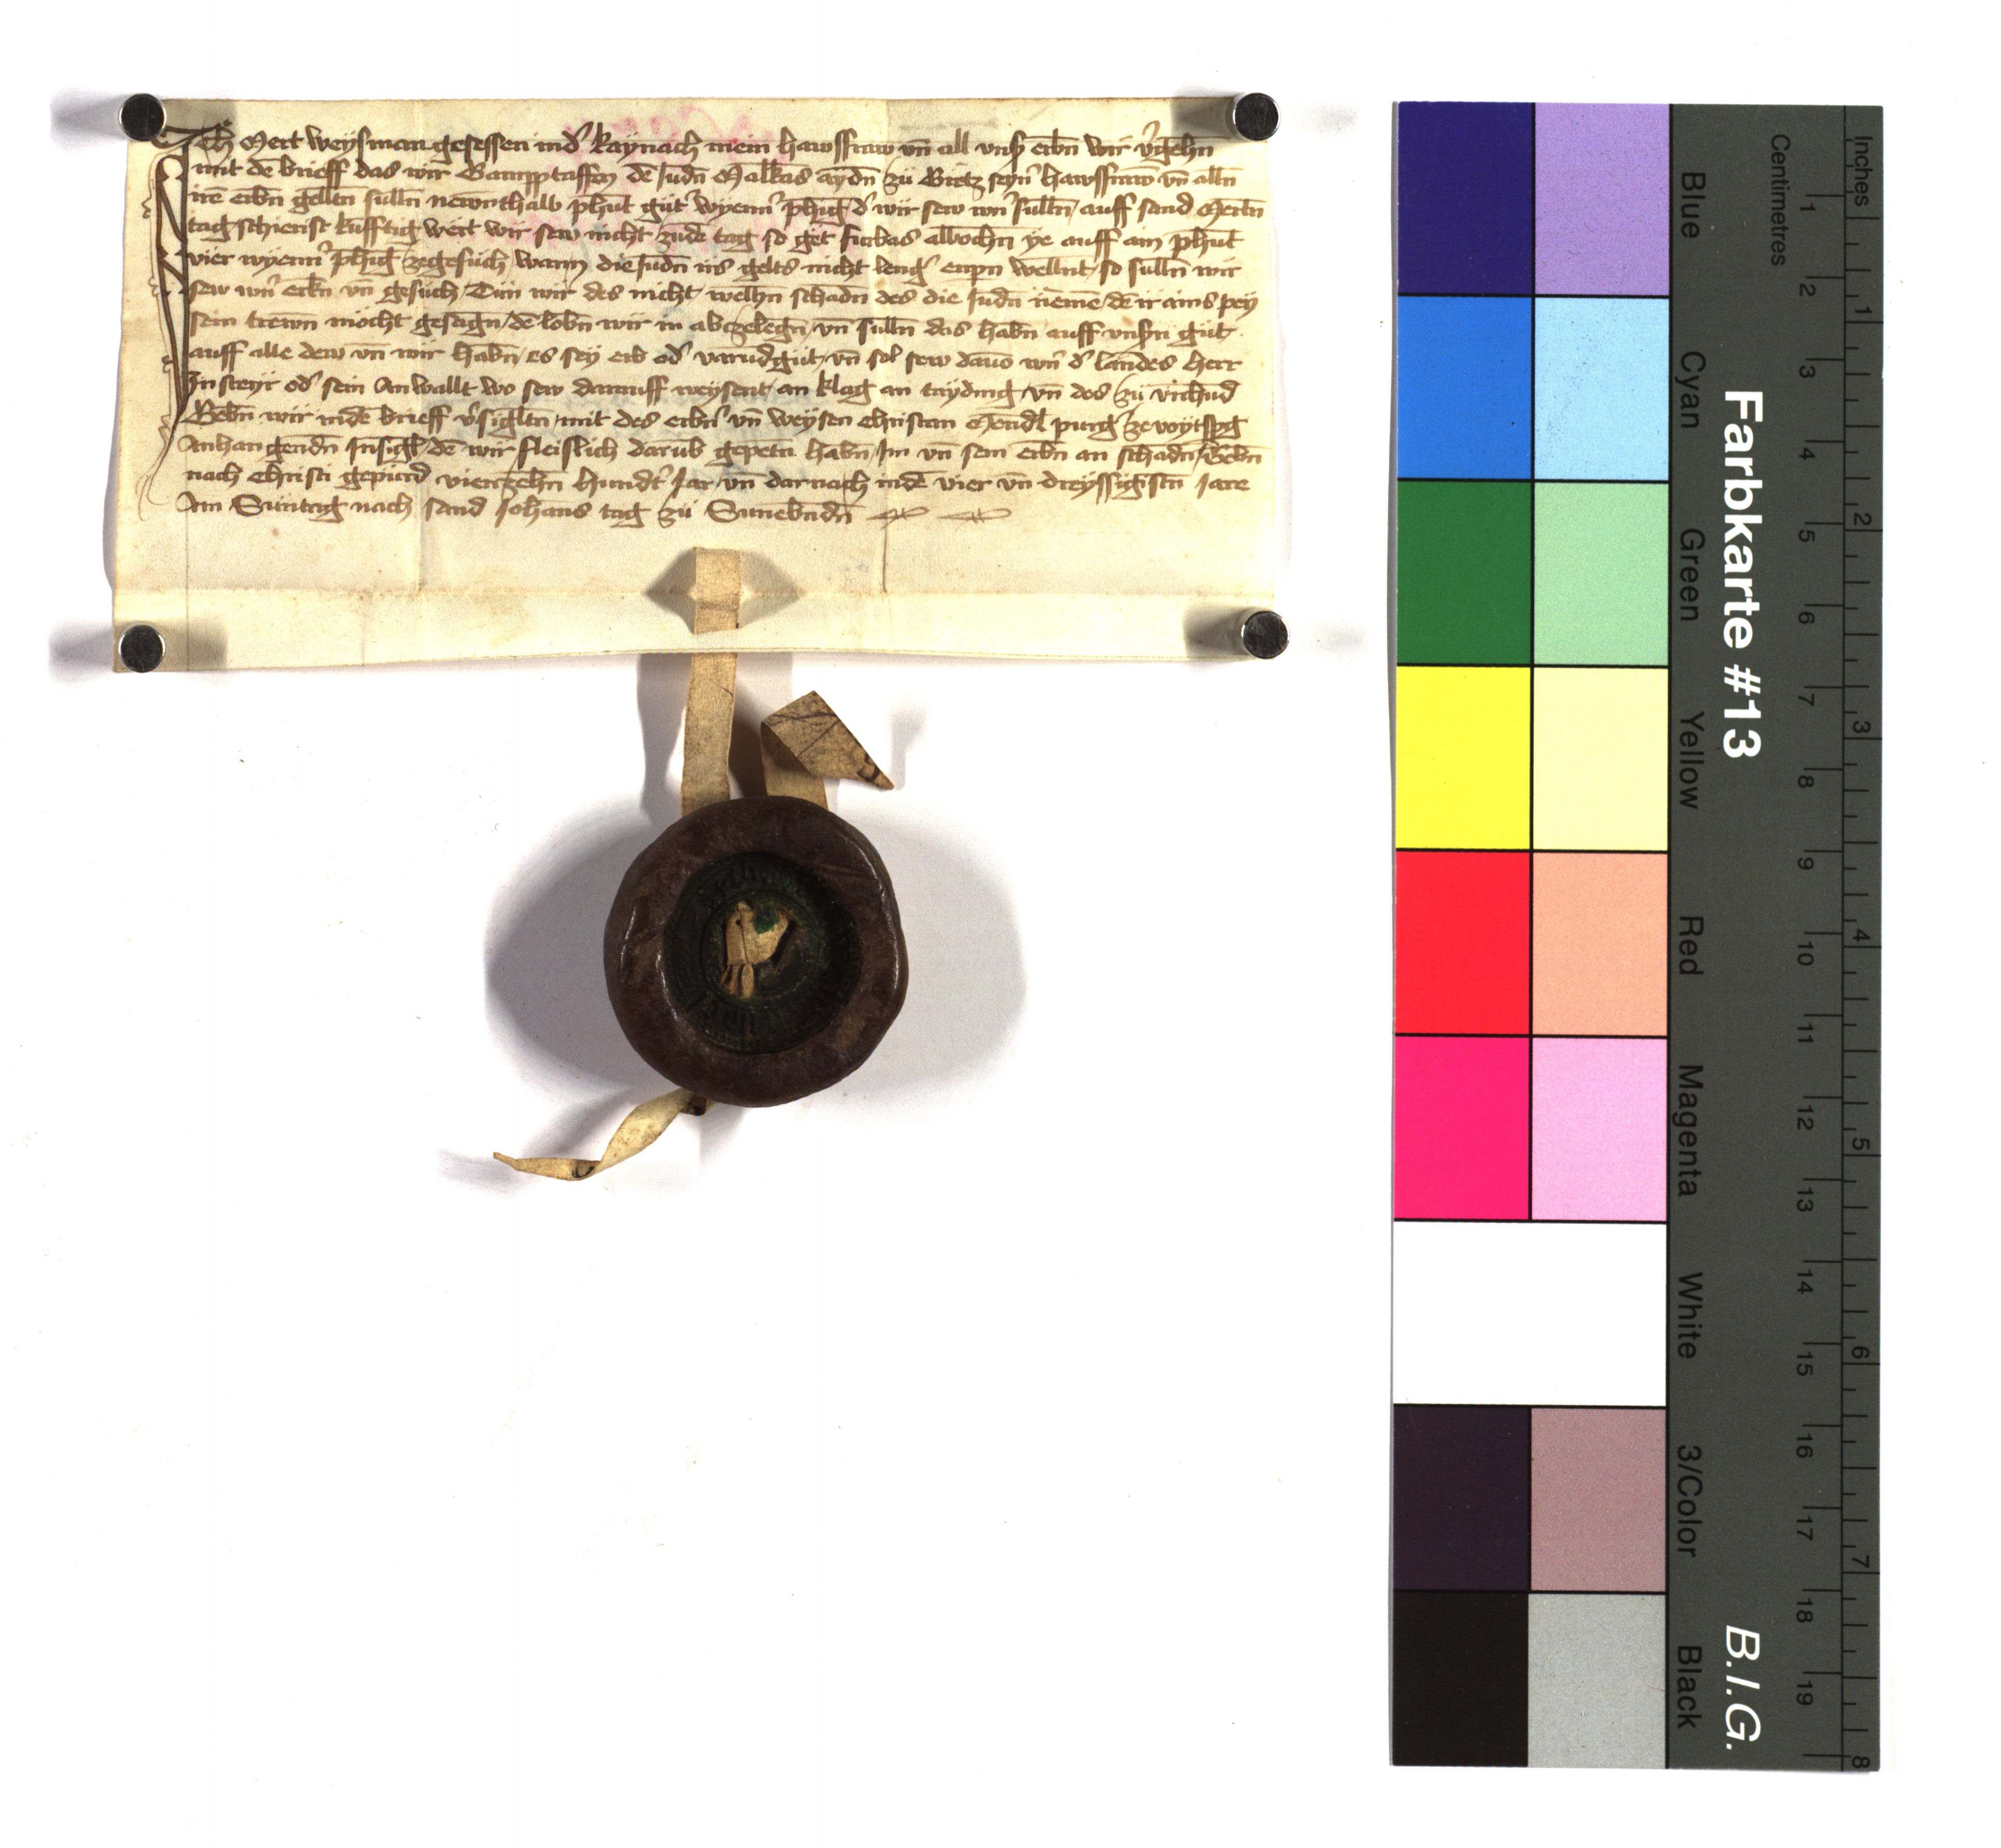 Ich Mert weysman gesessen in d' kaynach mein hawsfraw vn̄ all vnß erbn̄ wir v'gehn̄
mit dē brieff das wir dē Judn̄ Malkas aydn̄ zü Gretz seyn' hawsfraw vn̄ alln̄
irē erbn̄ geltn̄ sulln̄ newnthalb phūt güt' wyenn' phēig d' wir sew wn̄ sulln̄ auff sand Mertn̄
tag schierist kūfftig wert wir sew nicht zudē tag so get furbas albochn̄ ye auff ain phūt
vier wyenn' phēig zegesuch wann die Judn̄ irs gelts nicht leng' enpn wellnt so sulln̄ wir
sew wn̄ erbn̄ vn̄ gesuch Tün wir des nicht welhn̄ schadn̄ des die Judn̄ nēmē dē ir ains pey
sein trewn mocht gesagn dē lobn̄ wir in abczelegn vn̄ sulln̄ das habn̄ auff vnßn güt
auff alle dew vn̄ wir habn̄ es sey erb od' varūdgut vn̄ sol sew dauō wn̄ d' landes herr
In steyr od' sein Anwallt wo sew darauff weysent an klag an tayding vn̄ des zü vrchūd
Gebn̄ wir in dē brieff v'sigltn mit des erbn̄ vn̄ weysen christan Mendl purg' ze voytspg
Anhangendn̄ Insigl dē wir fleislich darūb gepetn̄ habn̄ Im vn̄ sein erbn̄ an schadn̄ Gebn̄
nach christi gepurd vierczehn̄ hundt' Jar vn̄ darnach in dē vier vn̄ dreyssigistn̄ Jare
Am Süntag nach sand Johans tag zü Sunebndn̄
Farbkarte #13
B.I.G.
Centimetres
Inches
Blue
Cyan
Green
Yellow
Red
Magenta
White
3/Color
Black
1 2 3 4 5 6 7 8 9 10 11 12 13 14 15 16 17 18 19
1 2 3 4 5 6 7 8